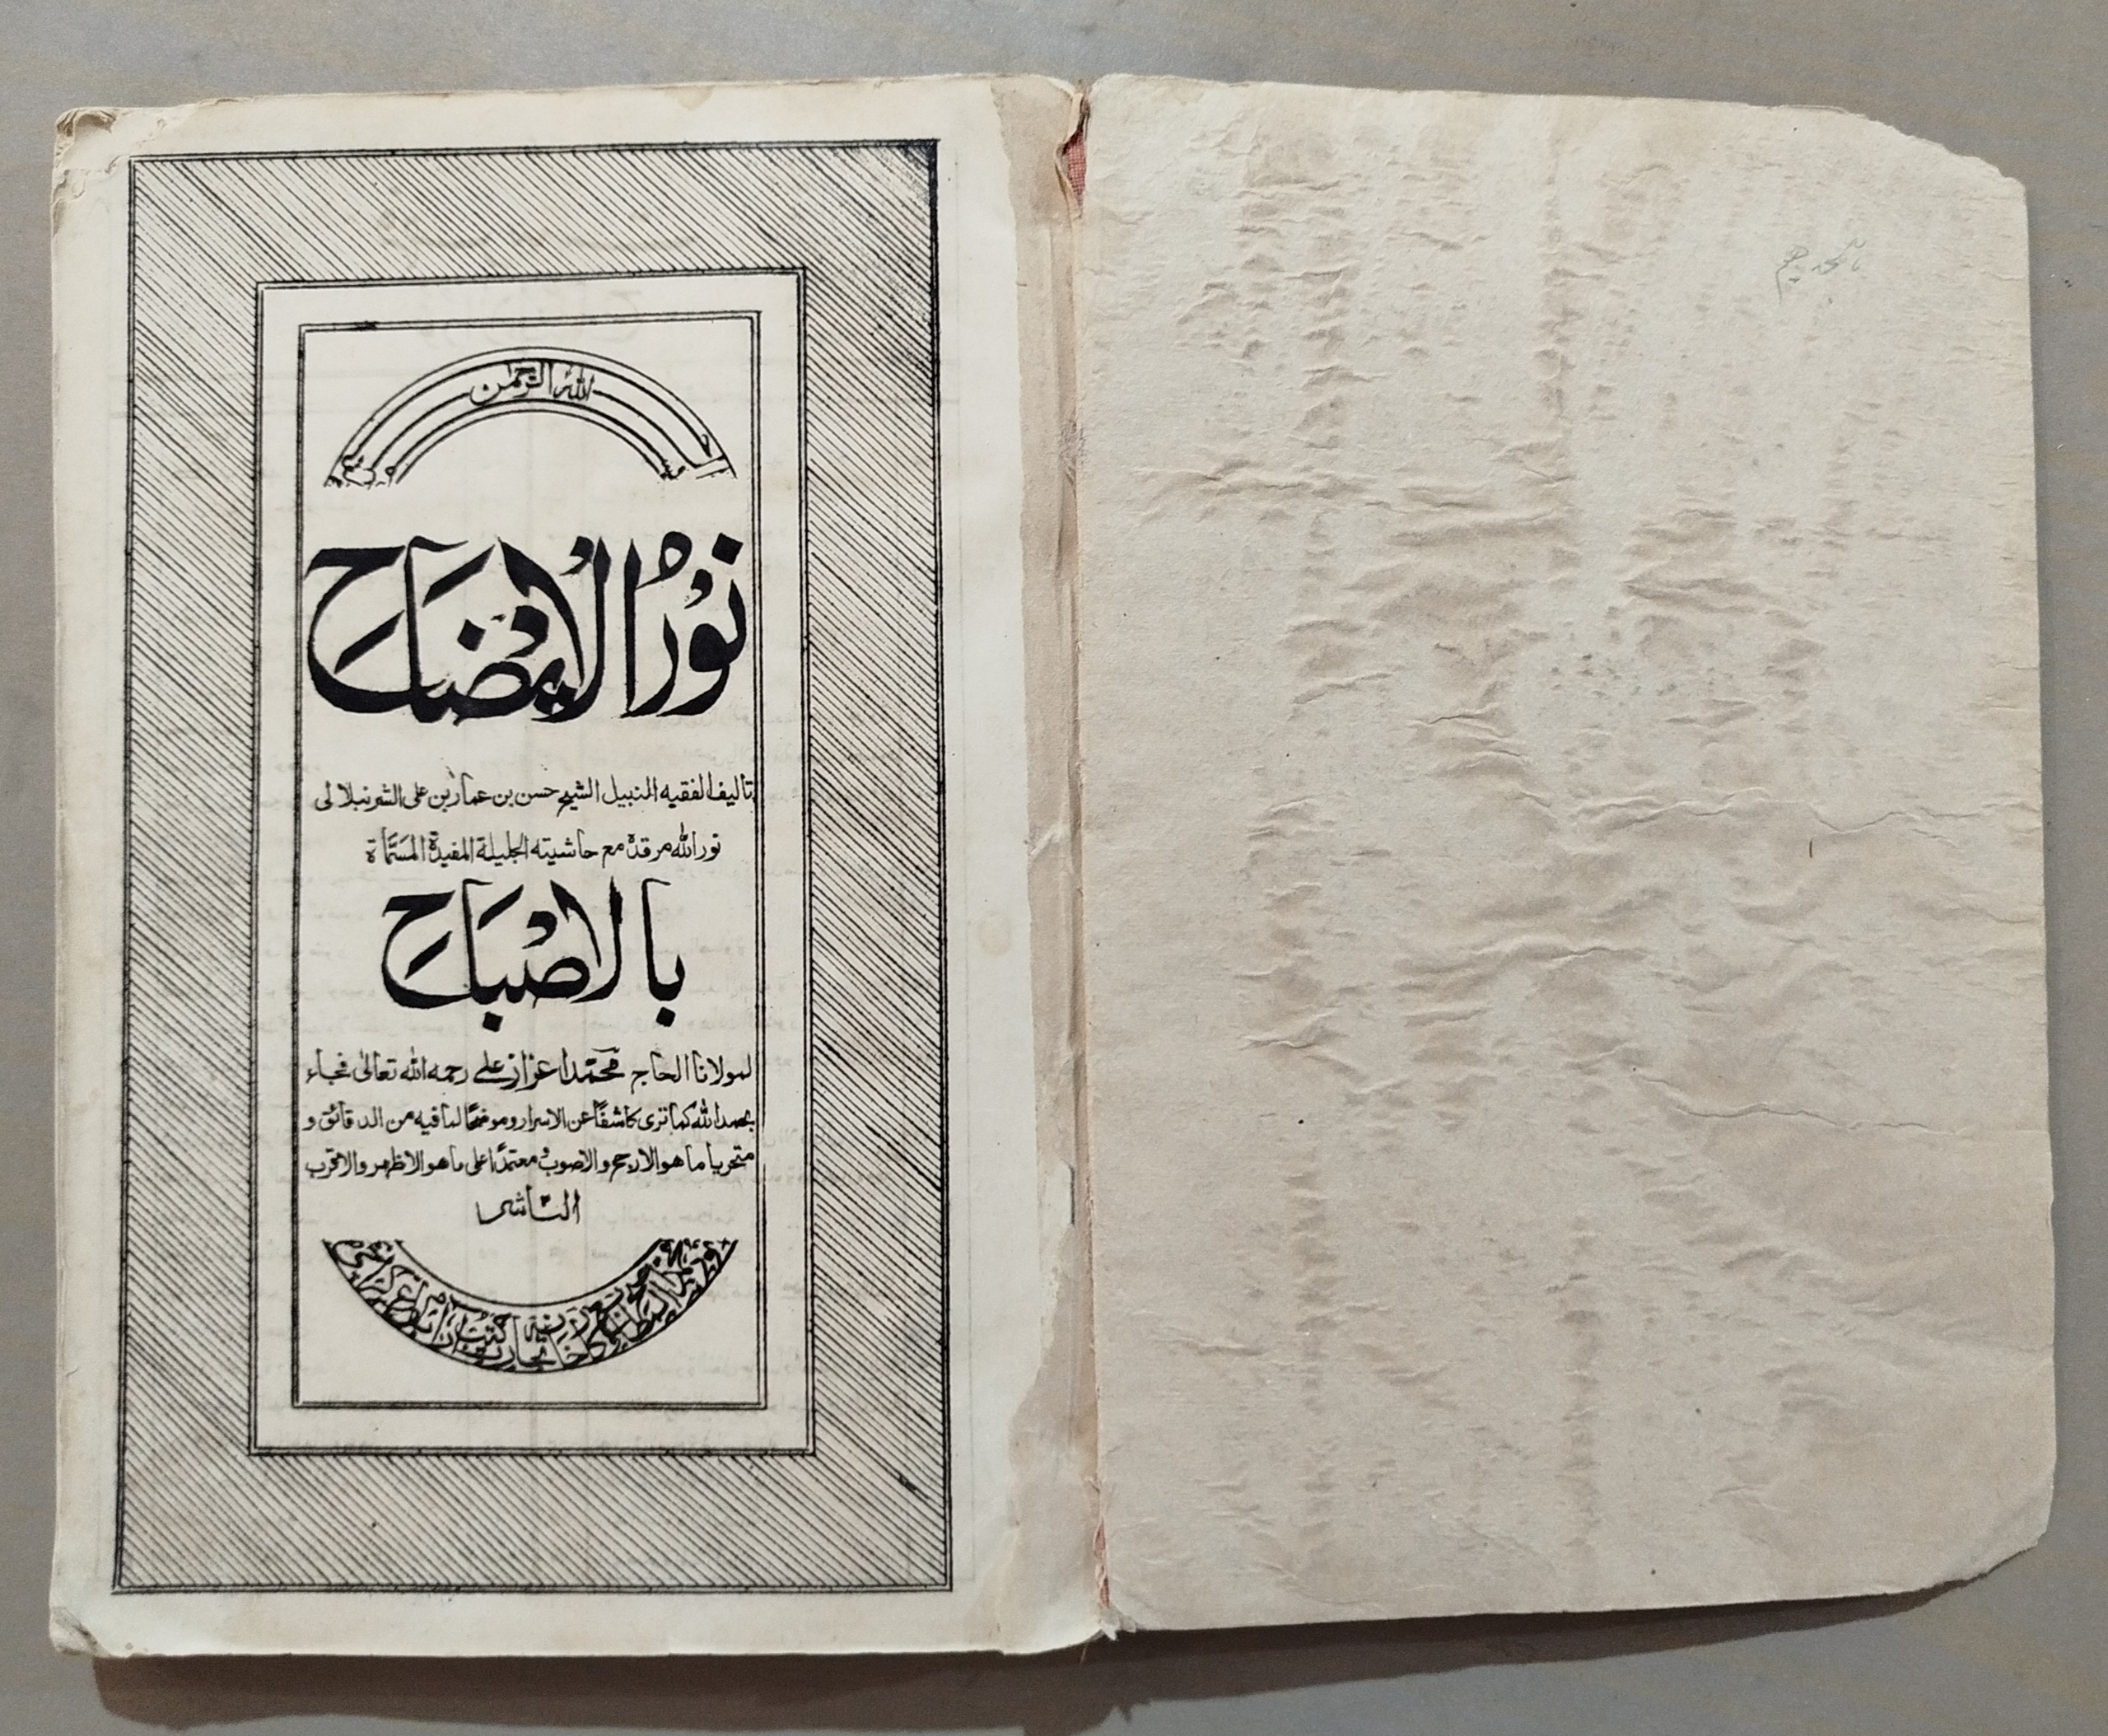 بسم الله الرحمن الرحيم
نُوْرُ الْاِيْضَاح
تأليف الفقيه النبيل الشيخ حسن بن عمار بن على الشرنبلالى
نور الله مرقدهٗ مع حاشيته الجليلة المفيدة المسَمَّاة
بالاصْبَاح
لمولانا الحاج محمّد اعزاز على رحمه الله تعالىٰ فجاء
بحمد الله كما ترى كاشفًا عن الاسرار و موضحًا لما فيه من الدقائق و
متحريا ما هو الارجح والاصوب و معتمدًا على ما هو الاظهر والاقرب
النّاشر
قديمى كتب خانه